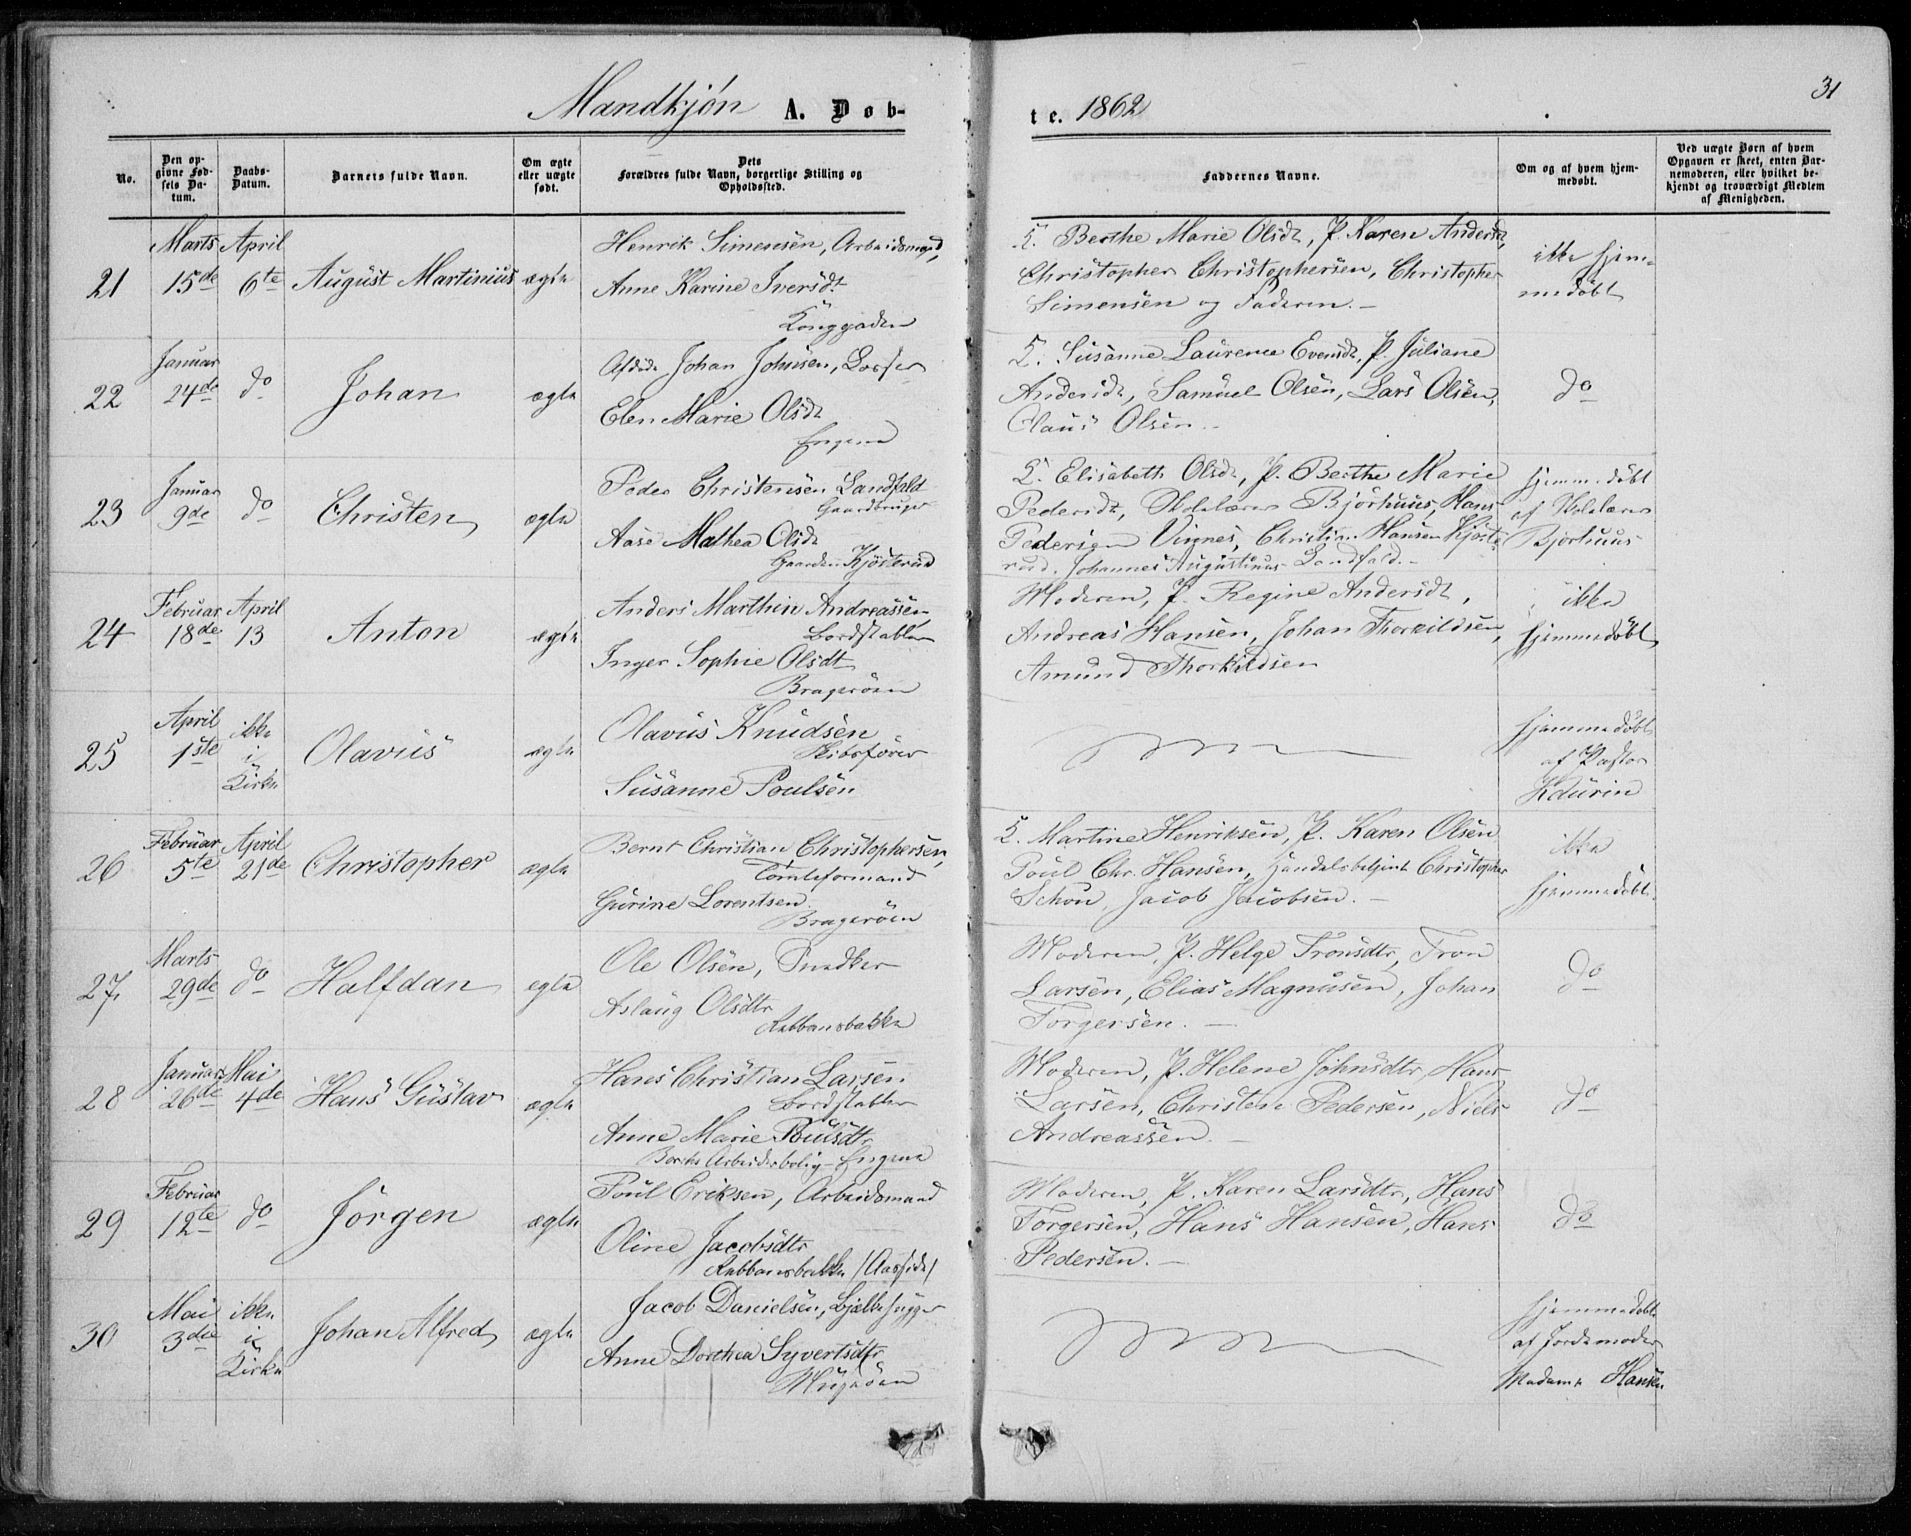 Mandkjøn A. Døb-
te. 1862
31
No.
Den opgivne Fødsels Datum.
Daabs-Datum.
Barnets fulde Navn.
Om ægte eller uægte født.
Dets Forældres fulde Navn, borgerlige Stilling og Opholdssted.
Faddernes Navne.
Om og af hvem hjemmedøbt.
Ved uægte Børn af hvem Opgaven er skeet, enten Barnemoderen, eller hvilket bekjendt og troværdigt Medlem af Menigheden.
21 Marts 15de April 6te August Martinius ægte
Henrik Simensen, Arbeidsmand,
Anne Karine Iversdt
Konggaden
Berthe Marie Olsdt, P. Karen Andersdt,
Christopher Christophersen, Christopher
Simensen og Faderen.
ikke hjem-
medøbt
22 Januar 24de do Johan ægte
Afdøde Johan Johnsen, Losser
Elen Marie Olsdt
Engene
Susanne Laurence Evensdt, P. Juliane
Andersdt, Samuel Olsen, Lars Olsen,
Claus Olsen.
do
23 Januar 9de do Christen ægte
Peder Christensen Landfald
Gaardbruger
Aase Mathea Olsdt
Gaarden Kjøsterud
Elisabeth Olsdt, P. Berthe Marie
Pedersdt, Skolelærer Bjørhuus, Hans
Pedersen Vinnes, Christian Hansen Kjøste-
rud, Johannes Augustinus Landfald.
hjemmedøbt
af Skolelærer
Bjørhuus
24 Februar 18de April 13 Anton ægte
Anders Marthin Andreassen,
Bordstabler
Inger Sophie Olsdt
Bragerøen
Moderen, P. Regine Andersdt,
Andreas Hansen, Johan Thorkildsen,
Amund Thorkildsen
ikke
hjemmedøbt
25 April 1ste ikke i Kirke Olavus ægte
Olavus Knudsen
Skibsfører
Susanne Poulsen
hjemmedøbt
af Pastor
26 Februar 5te April 21de Christopher ægte
Bernt Christian Christophersen,
Tomteformand
Gurine Lorentsen
Bragerøen
Martine Henriksen, P. Karen Olsen
Poul Chr. Hansen, Handelsbetjent Christopher
Schou, Jacob Jacobsen.
ikke
hjemmedøbt
27 Marts 29de do Halfdan egte
Ole Olsen, Snedker
Aslaug Olsdtr
Rabbansbakke
Moderen, P. Helge Tronsdtr, Tron
Larsen, Elias Magnusen, Johan
Torgersen.
do
28 Januar 26de Mai 4de Hans Gustav ægte
Hans Christian Larsen
Bordstabler
Anne Marie Poulsdtr
Borchs Arbeiderbolig - Engene
Moderen, P. Helene Johnsdtr, Hans
Larsen, Christen Pedersen, Niels
Andreassen.
do
29 Februar 12te do Jörgen ægte
Poul Eriksen, Arbeidsmand
Oline Jacobsdtr
Rabbansbakke (Aasside)
Moderen, P. Karen Larsdtr, Hans
Torgersen, Hans Hansen, Hans
Pedersen.
do
30 Mai 3die ikke i Kirke Johan Alfred ægte
Jacob Danielsen, Bjælkehugger
Anne Dorthea Syvertsdtr
hjemmedøbt
af Jordemoder
Madame Hansen